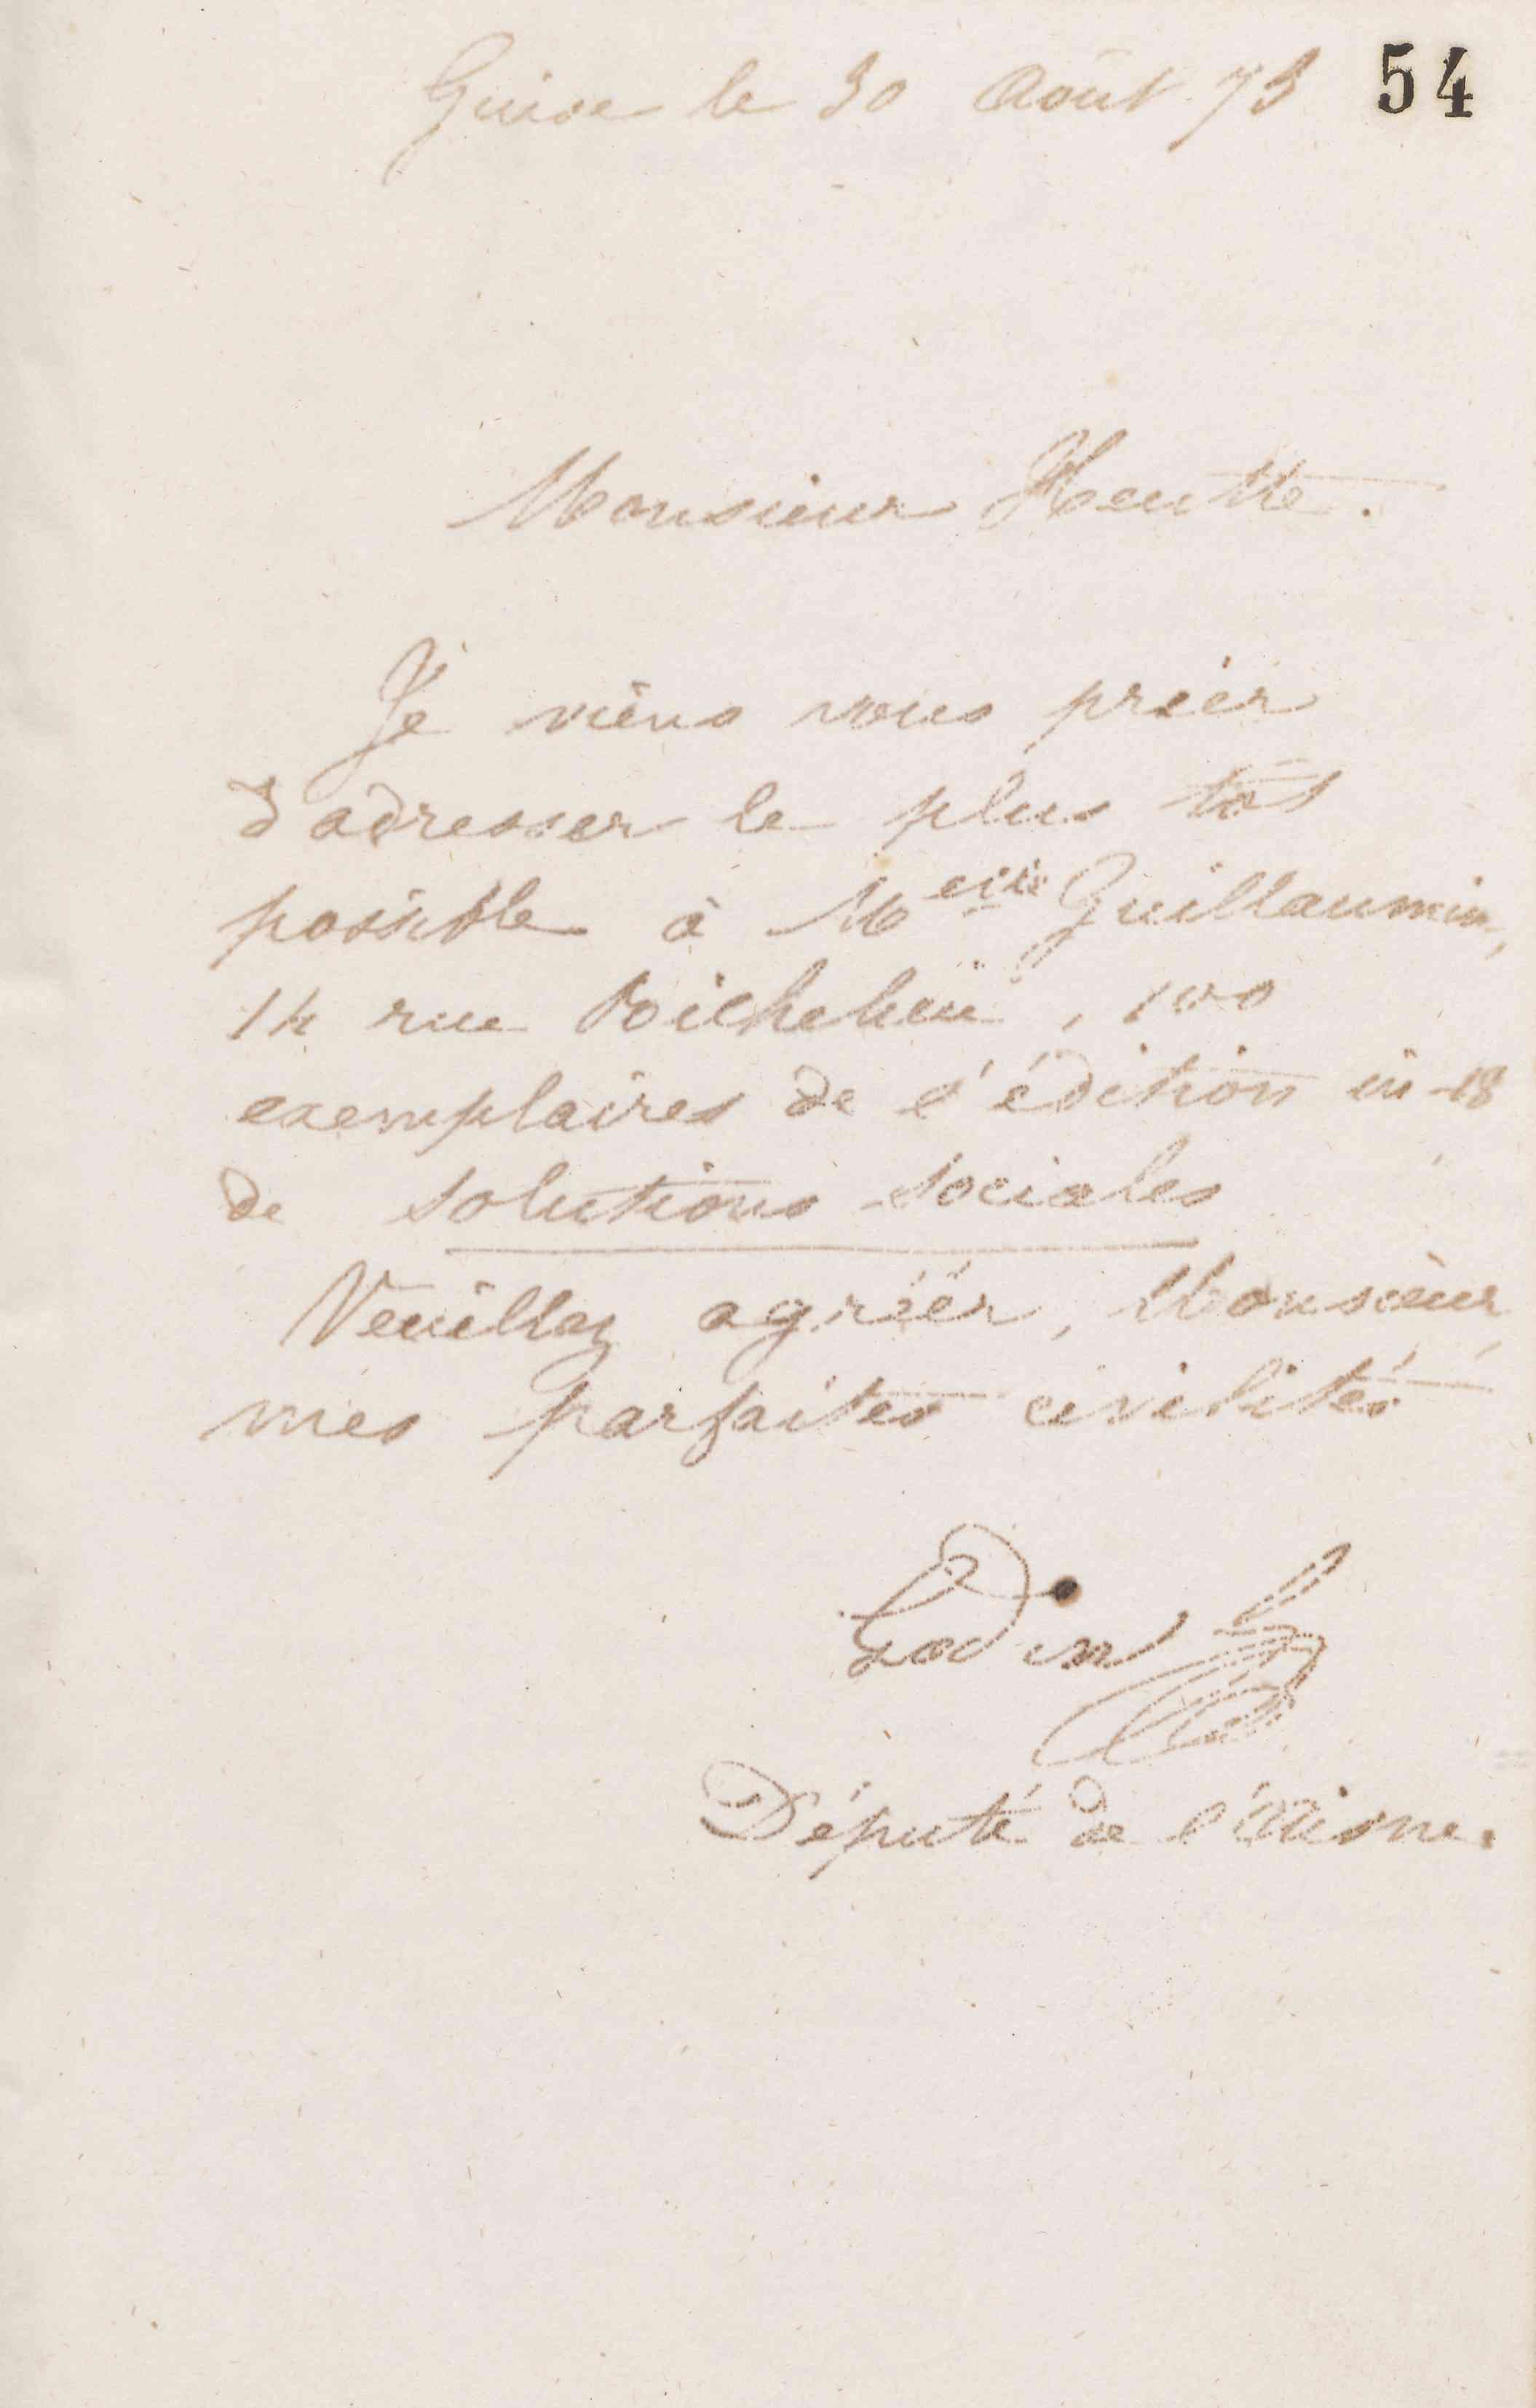 Guise le 30 Août 73 54
Monsieur Heutte.
Je viens vous prier
d'adresser le plus tôt
possible à Melle Guillaumin,
14 rue Richelieu, 100
exemplaires de l'édition in-18
de solutions sociales
Veuillez agréer, Monsieur
mes parfaites civilités
Godin
Député de l'Aisne.